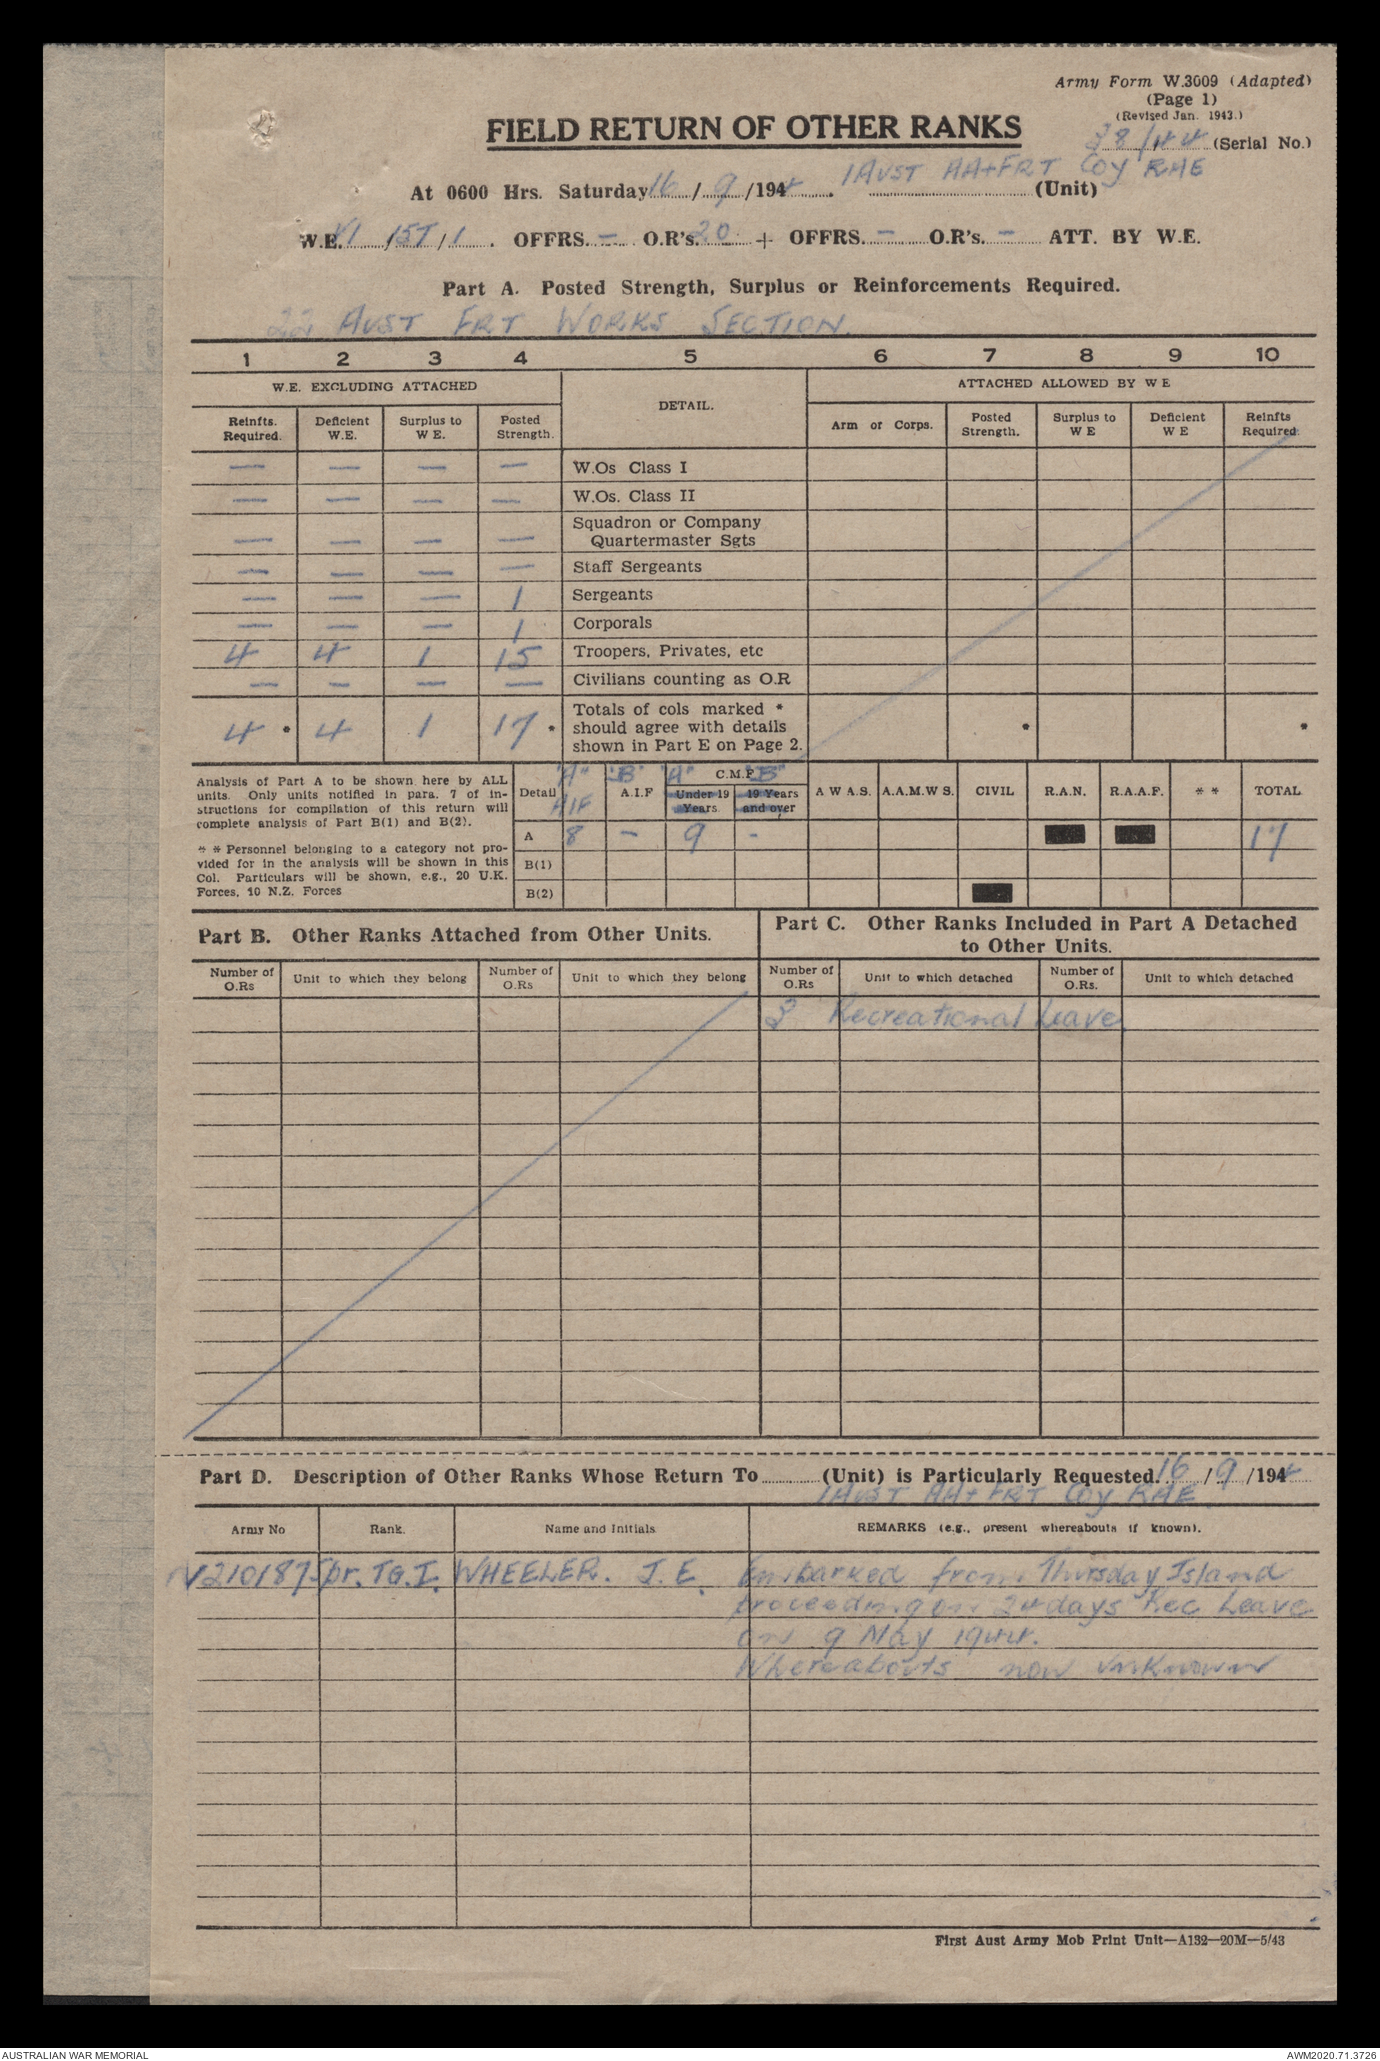 Army Form W.3009 (Adapted)
(Page 1)
(Revised Jan. 1943.)
38/44 (Serial No.)
FIELD RETURN OF OTHER RANKS
1 AUST AA+FRT COY RAE
At 0600 Hrs. Saturday 16/9/1944. (Unit)
W.E. VI/15T/1. OFFRS. — O.R's. 20 + OFFRS. — O.R's. — ATT. BY W.E.
Part A. Posted Strength, Surplus or Reinforcements Required.
22 AUST FRT WORKS SECTION.
1 2 3 4 5 6 7 8 9 10
W.E. EXCLUDING ATTACHED DETAIL. ATTACHED ALLOWED BY W E
Reinfts. Required. Deficient W.E. Surplus to W E. Posted Strength. Arm or Corps. Posted Strength. Surplus to W E Deficient W E Reinfts Required.
— — — — W.Os Class I
— — — — W.Os. Class II
Squadron or Company
— — — — Quartermaster Sgts
— — — — Staff Sergeants
— — — 1 Sergeants
— — — 1 Corporals
4 4 1 15 Troopers, Privates, etc
— — — — Civilians counting as O.R
Totals of cols marked *
4 * 4 1 17 * should agree with details * *
shown in Part E on Page 2.
Analysis of Part A to be shown here by ALL
units. Only units notified in para. 7 of in-
structions for compilation of this return will
complete analysis of Part B(1) and B(2).
* * Personnel belonging to a category not pro-
vided for in the analysis will be shown in this
Col. Particulars will be shown, e.g., 20 U.K.
Forces, 10 N.Z. Forces
"A" "B" "A" C.M.F. "B"
Detail AIF A.I.F Under 19 Years 19 Years and over A W A S. A.A.M.W S. CIVIL R.A.N. R.A.A.F. * * TOTAL
A 8 — 9 - 17
B(1)
B(2)
Part B. Other Ranks Attached from Other Units.
Part C. Other Ranks Included in Part A Detached
to Other Units.
Number of O.Rs Unit to which they belong Number of O.Rs Unit to which they belong Number of O.Rs Unit to which detached Number of O.Rs. Unit to which detached
3 Recreational Leave
Part D. Description of Other Ranks Whose Return To (Unit) is Particularly Requested. 16/9/1944
1 AUST AA+FRT COY RAE
Army No Rank. Name and Initials REMARKS (e.g., present whereabouts if known).
V210187 Spr. TG.I. WHEELER. J.E. Embarked from Thursday Island
proceeding on 24 days Rec Leave
on 9 May 1944.
Whereabouts now unknown
First Aust Army Mob Print Unit—A132—20M—5/43
AUSTRALIAN WAR MEMORIAL
AWM2020.71.3726